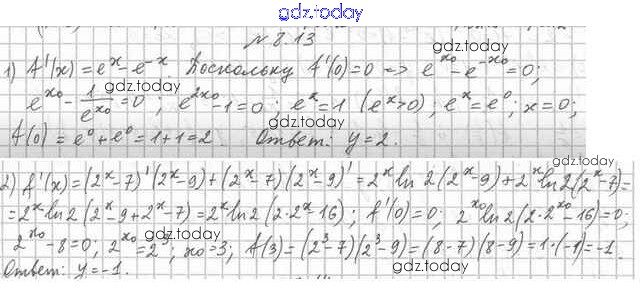 gdz.today
№ 8.13
gdz.today
1) A'(x) = e^x - e^-x. Поскольку A'(0) = 0 => e^x0 - e^-x0 = 0;
gdz.today
e^x0 - 1/e^x0 = 0; e^2x0 - 1 = 0; e^x = 1 (e^x > 0); e^x = e^0; x = 0;
A(0) = e^0 + e^0 = 1 + 1 = 2. Ответ: y = 2.
gdz.today
gdz.today
2) A'(x) = (2^x - 7)'(2^x - 9) + (2^x - 7)(2^x - 9)' = 2^x ln 2 (2^x - 9) + 2^x ln 2 (2^x - 7) =
= 2^x ln 2 (2^x - 9 + 2^x - 7) = 2^x ln 2 (2·2^x - 16); A'(0) = 0; 2^x0 ln 2 (2·2^x0 - 16) = 0;
gdz.today
2^x0 - 8 = 0; 2^x0 = 2^3; x0 = 3; A(3) = (2^3 - 7)(2^3 - 9) = (8 - 7)(8 - 9) = 1·(-1) = -1.
gdz.today
Ответ: y = -1.